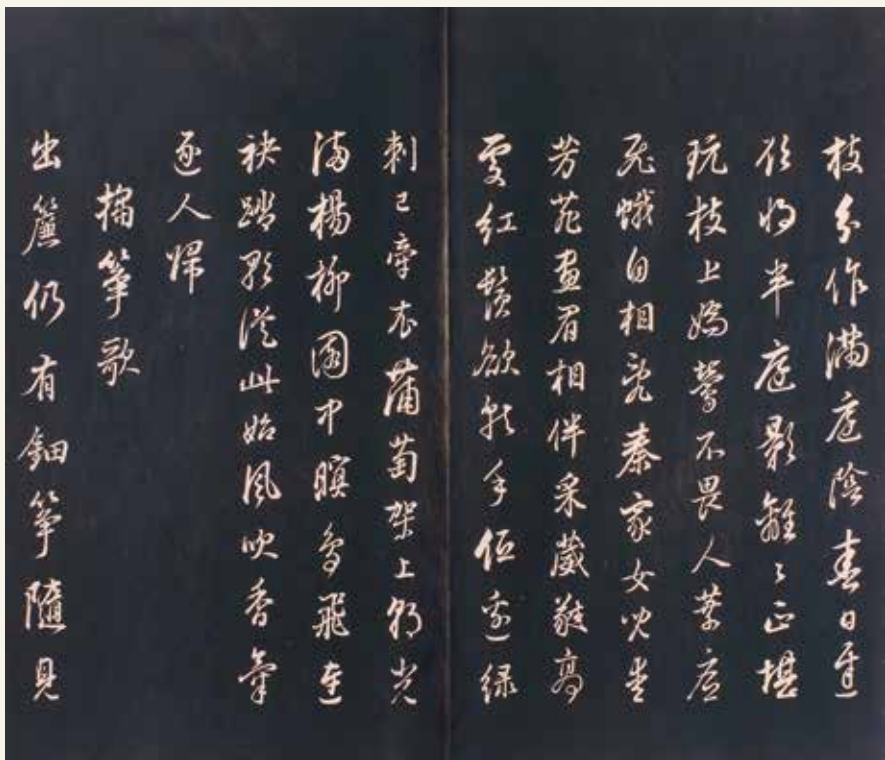 枝分作滿庭陰春日遲
欲將半庭影離〻正堪
玩枝上嬌鶯不畏人葉底
飛蛾自相亂秦家女兒愛
芳菲畫眉相伴采葳蕤高
處紅鬚欲就手低邊綠
刺已牽衣蒲萄架上朝光
滿楊柳園中暝鳥飛連
袂踏歌從此始風吹香氣
逐人歸
搊箏歌
出簾仍有鈿箏隨見